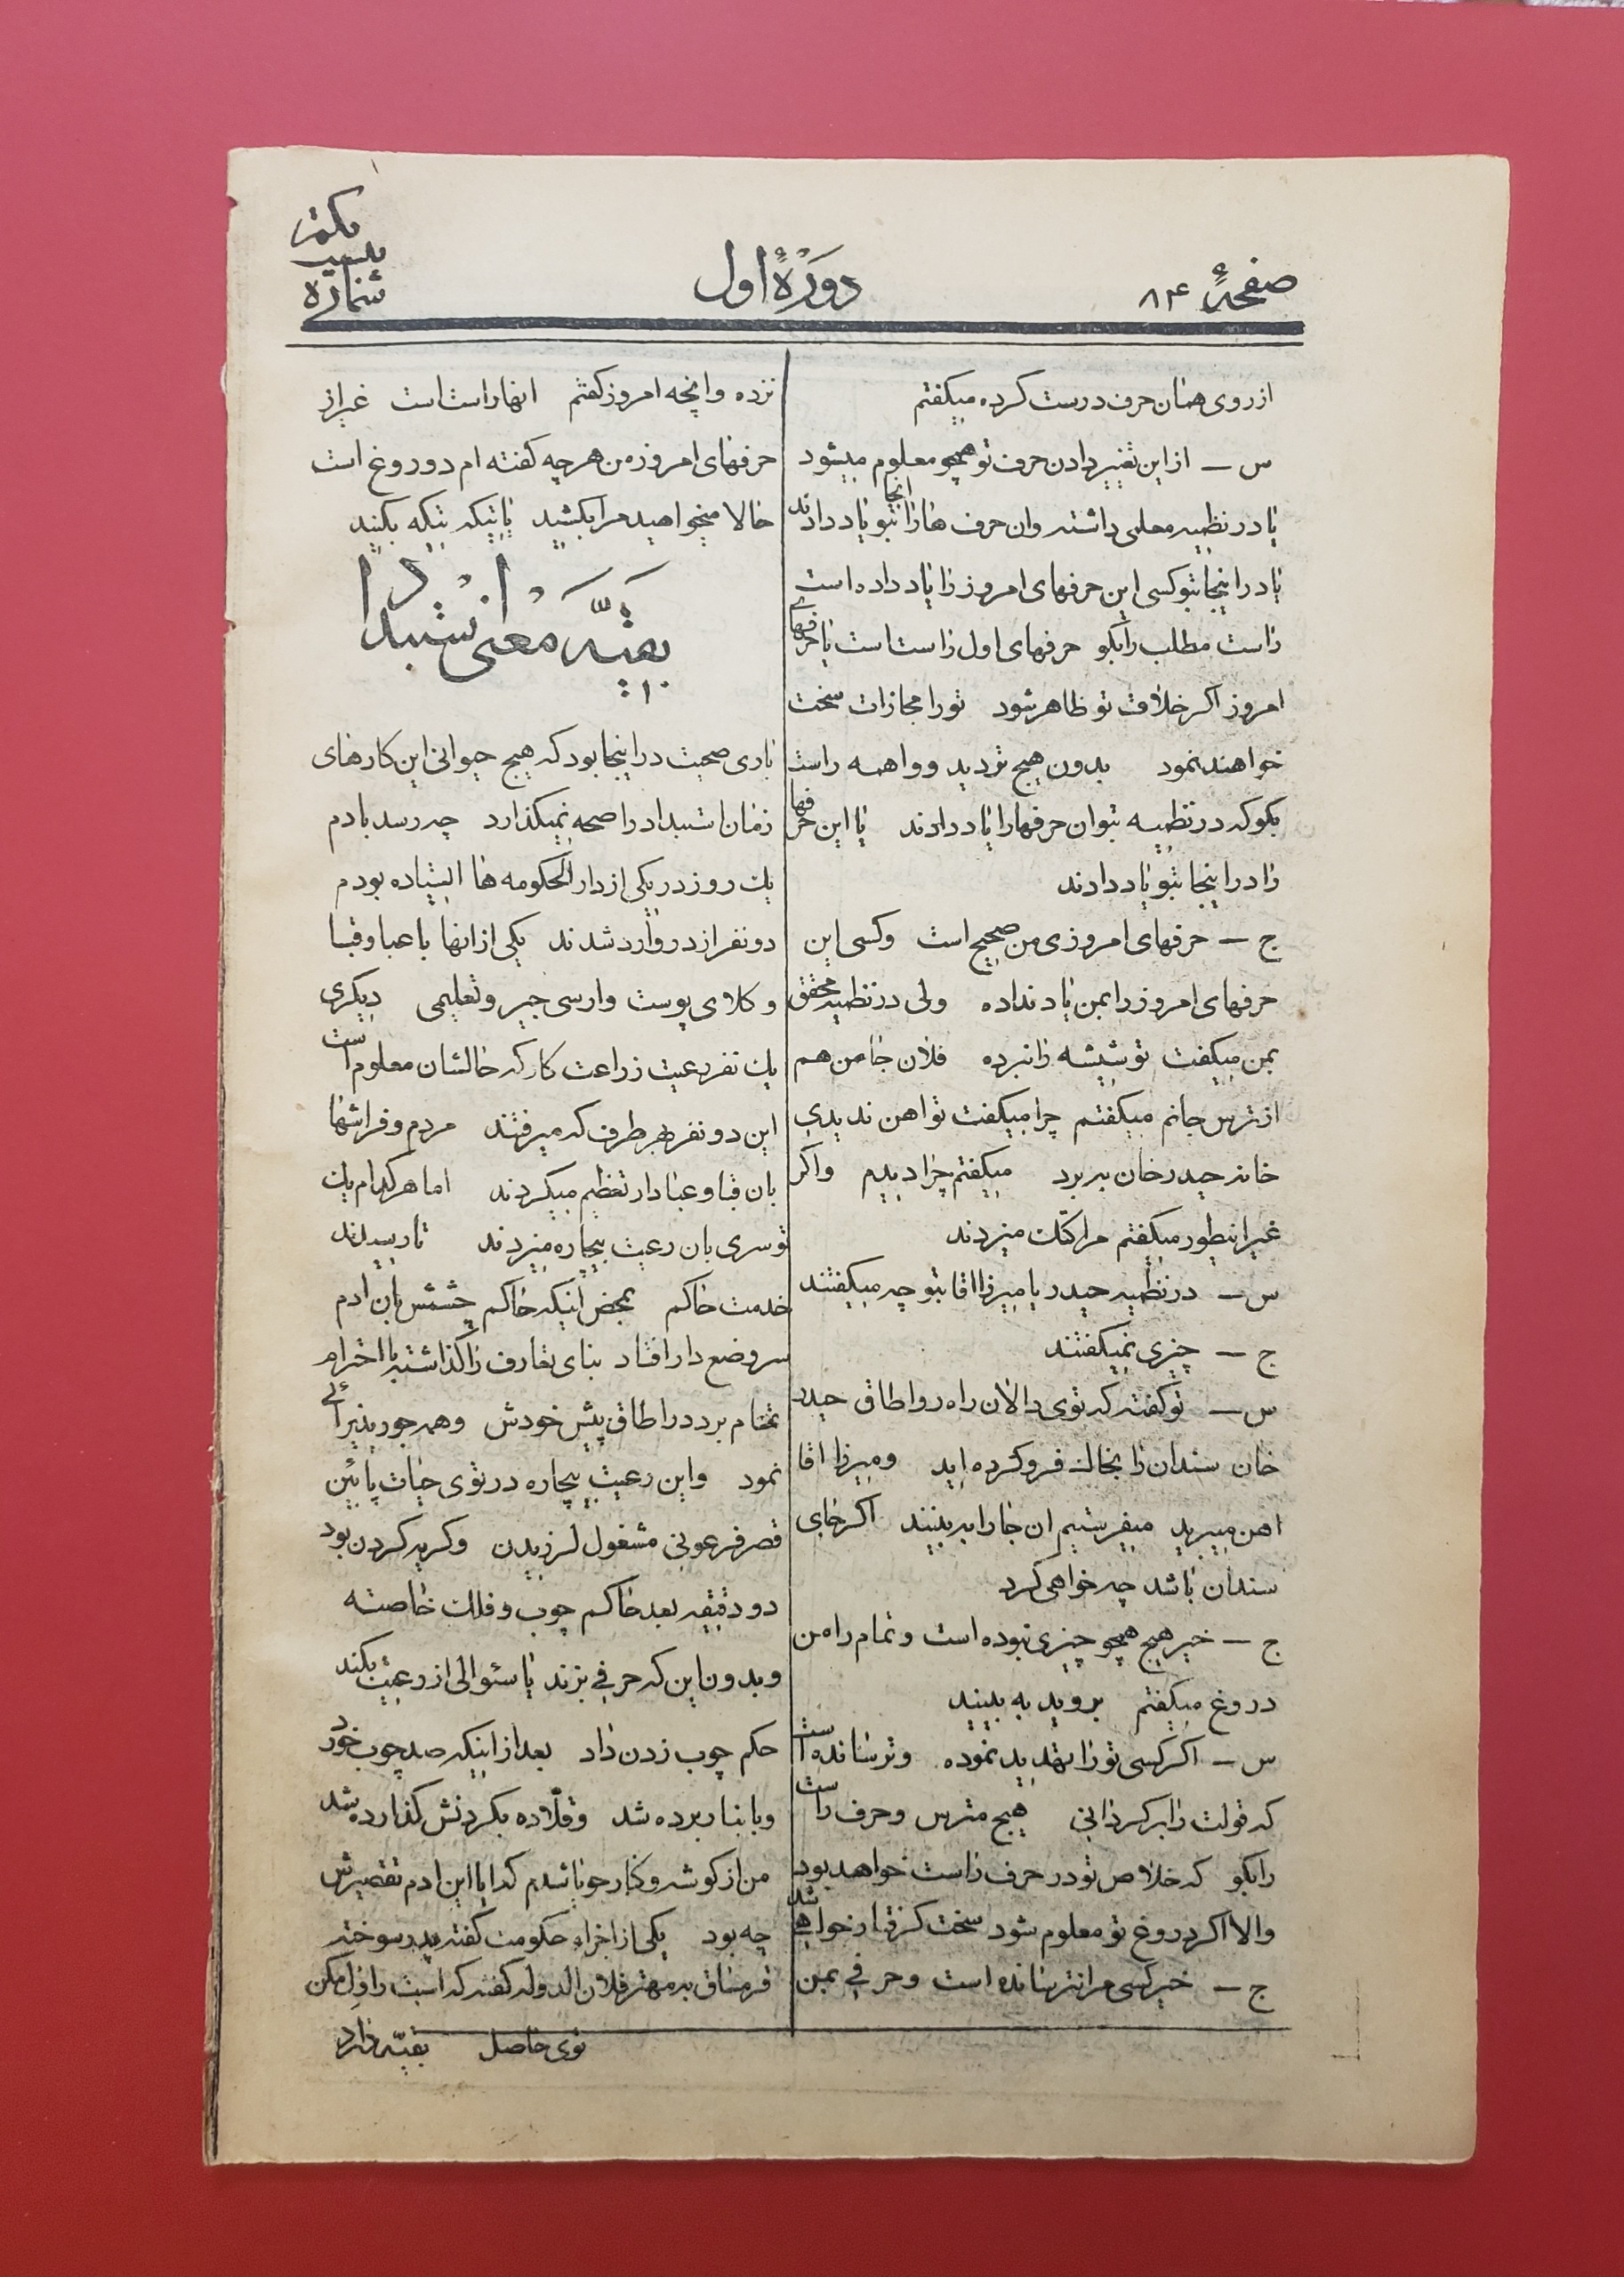 صفحهٔ ۸۴
دَورَهٔ اول
شماره بیست یکم
از روی همان حرف درست کرده میگفتم
س — از این تغییر دادن حرف تو همچو معلوم میشود
یا در نظمیه معلمی داشته و ان حرف ها را انجا بتو یاد دادند
یا در اینجا بتو کسی این حرفهای امروز را یاد داده است
راست مطلب را بگو حرفهای اول راست است یا حرفهای
امروز اگر خلاف تو ظاهر شود تو را مجازات سخت
خواهند نمود بدون هیچ تردید و واهمه راست
بگو که در نظمیه بتو ان حرفها را یاد دادند یا این حرفها
را در اینجا بتو یاد دادند
ج — حرفهای امروزی من صحیح است و کسی این
حرفهای امروز را بمن یاد نداده ولی در نظمیه محقق
بمن میگفت تو شیشه را نبرده فلان جا من هم
از ترس جانم میگفتم چرا میگفت تو اهن ندیدی
خانه حیدر خان ببرد میگفتم چرا دیدم و اگر
غیر اینطور میگفتم مرا کتک میزدند
س — در نظمیه حیدر یا میرزا اقا بتو چه میگفتند
ج — چیزی نمیگفتند
س — تو گفته که توی دالان راه رو اطاق حیدر
خان سندان را بخاک فرو کرده اید و میرزا اقا
اهن میبرید میفرستیم ان جا را به بینند اگر جای
سندان باشد چه خواهی کرد
ج — خیر هیچ همچو چیزی نبوده است و تمام را من
دروغ میگفتم بروید به بینید
س — اگر کسی تو را تهدید نموده و ترسانده است
که قولت را برگردانی هیچ مترس و حرف راست
را بگو که خلاص تو در حرف راست خواهد بود
والا اگر دروغ تو معلوم شود سخت گرفتار خواهی شد
ج — خیر کسی مرا نترسانده است و حرفی بمن
نزده و انچه امروز گفتم انها راست است غیر از
حرفهای امروزه من هر چه گفته ام دوروغ است
حالا میخواهید مرا بکشید یا تیکه تیکه بکنید
بقیّه معنی استبداد
باری صحبت در اینجا بود که هیچ حیوانی این کارهای
زمان استبداد را صحه نمیگذارد چه رسد بادم
یک روز در یکی از دار الحکومه ها ایستاده بودم
دو نفر از در وارد شدند یکی از انها با عبا و قبا
و کلای پوست و ارسی جیر و تعلیمی دیگری
یک نفر رعیت زراعت کار که حالشان معلوم است
این دو نفر بهر طرف که میرفتند مردم و فراشها
بان قبا و عبا دار تعظیم میکردند اما هر کدام یک
توسری بان رعیت بیچاره میزدند تا رسیدند
خدمت حاکم بمحض اینکه حاکم چشمش بان ادم
سر و ضع دار افتاد بنای تعارف را گذاشته با احترام
تمام برد در اطاق پیش خودش و همه جور پذیرائی
نمود و این رعیت بیچاره در توی حیات پائین
قصر فرعونی مشغول لرزیدن و گریه کردن بود
دو دقیقه بعد حاکم چوب و فلک خاصته
و بدون این که حرفی بزند یا سئوالی از رعیت بکند
حکم چوب زدن داد بعد از اینکه صد چوب خورد
و بانبار برده شد و قلّاده بگردنش گذارده شد
من از گوشه و کنار جویا شدم که ایا این ادم تقصیرش
چه بود یکی از اجزاء حکومت گفته پدر سوخته
قرمساق به مهتر فلان الدوله گفته که اسبت را ول مکن
توی حاصل بقیّه دارد